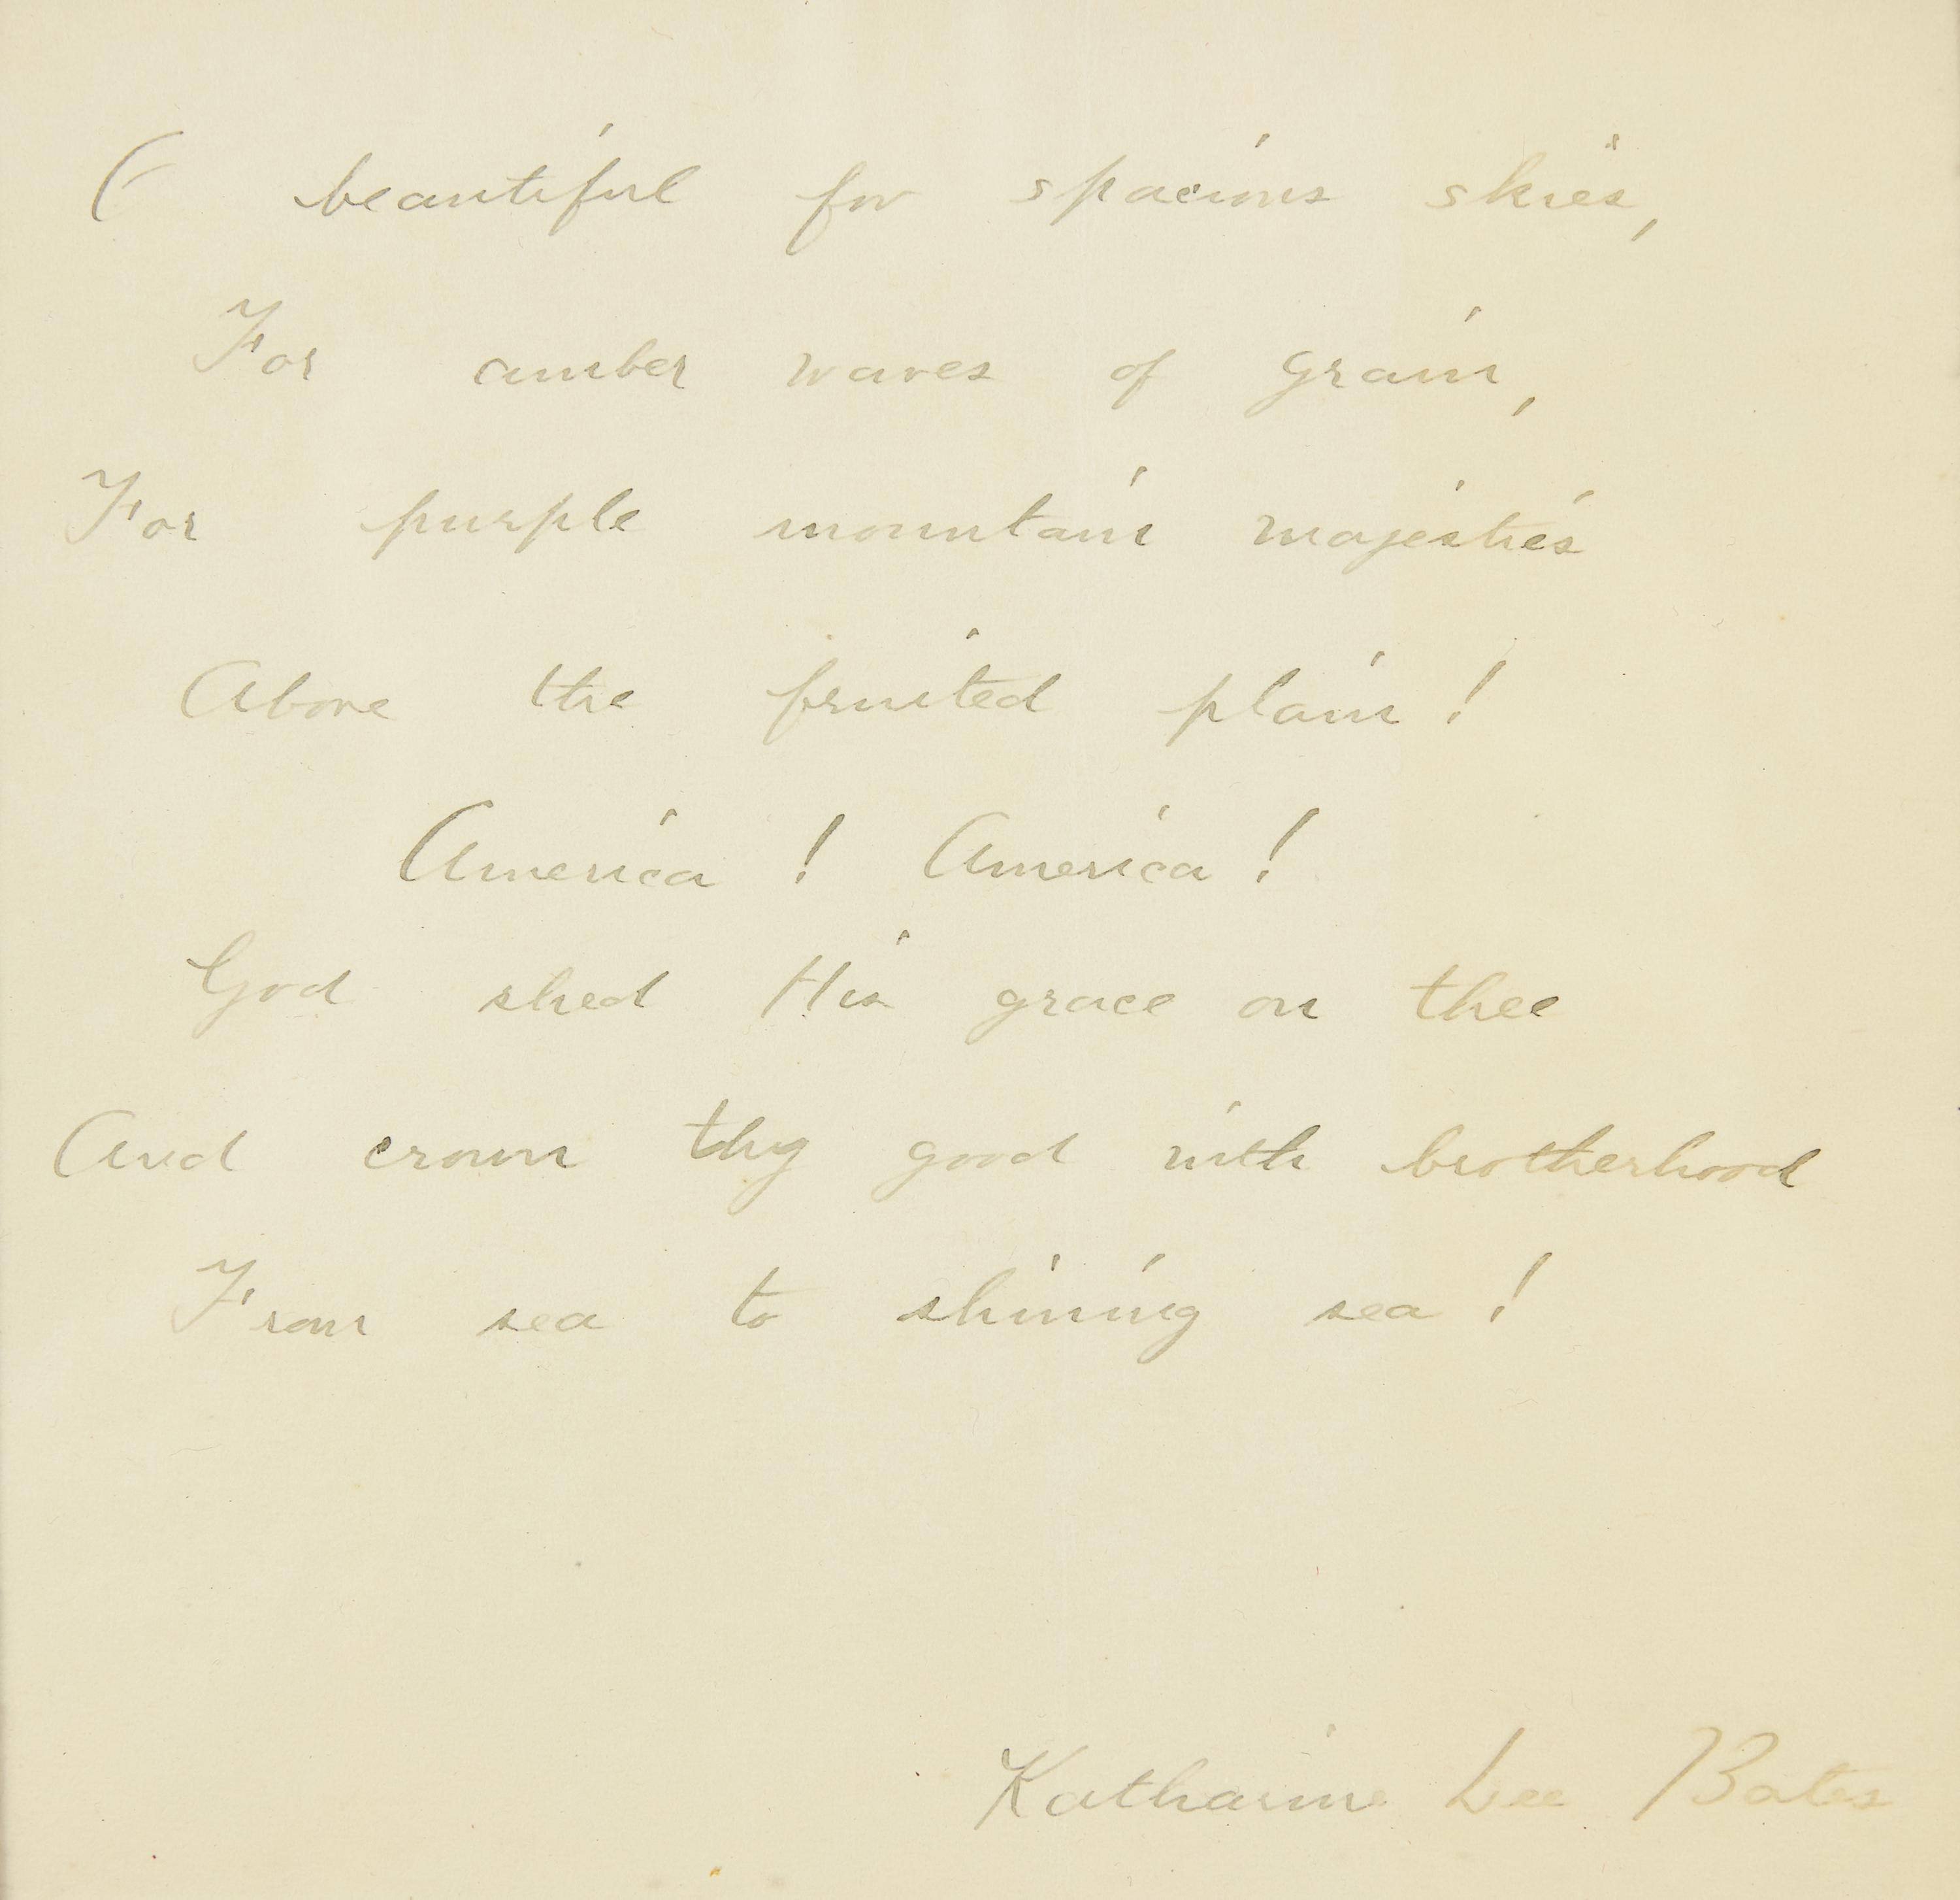 O beautiful for spacious skies,
For amber waves of grain,
For purple mountain majesties
Above the fruited plain!
America! America!
God shed His grace on thee
And crown thy good with brotherhood
From sea to shining sea!
Katharine Lee Bates